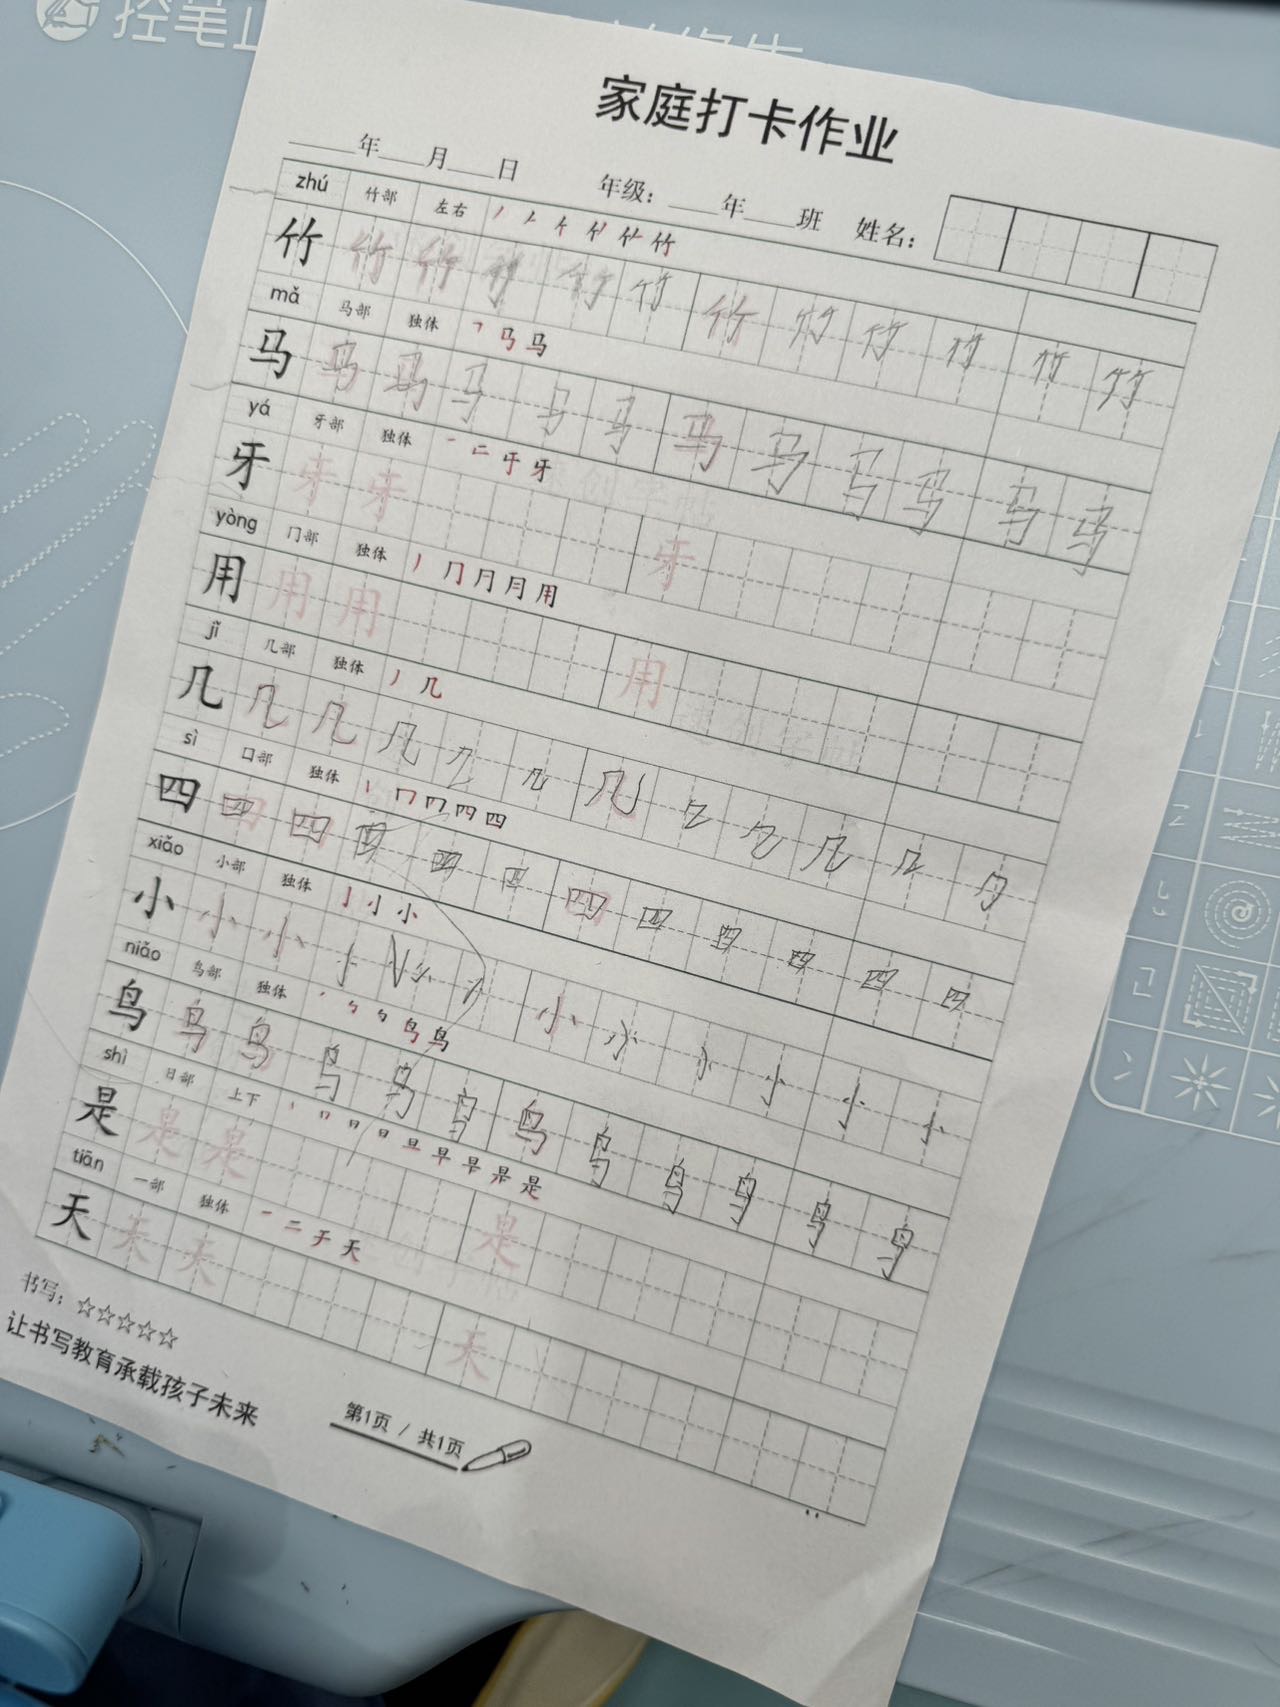 控笔
家庭打卡作业
年 月 日 年级： 年 班 姓名：
zhú 竹部 左右 竹
竹 竹 竹 竹 竹 竹 竹 竹 竹 竹 竹 竹
mǎ 马部 独体 ㇕ 马 马
马 马 马 马 马 马 马 马 马 马 马 马
yá 牙部 独体 一 二 于 牙
牙 牙 牙 牙
yòng 冂部 独体 丿 冂 月 月 用
用 用 用 用
jǐ 几部 独体 丿 几
几 几 几 几 几 几 几 几 几 几 几 几
sì 口部 独体 丨 冂 四 四
四 四 四 四 四 四 四 四 四 四 四 四
xiǎo 小部 独体 亅 小
小 小 小 小 小 小 小 小 小 小
niǎo 鸟部 独体 鸟 鸟
鸟 鸟 鸟 鸟 鸟 鸟 鸟 鸟 鸟 鸟 鸟 鸟
shì 日部 上下 丨 冂 日 日 旦 早 早 是 是
是 是 是 是
tiān 一部 独体 一 二 于 天
天 天 天 天
书写：☆☆☆☆☆
让书写教育承载孩子未来
第1页 / 共1页